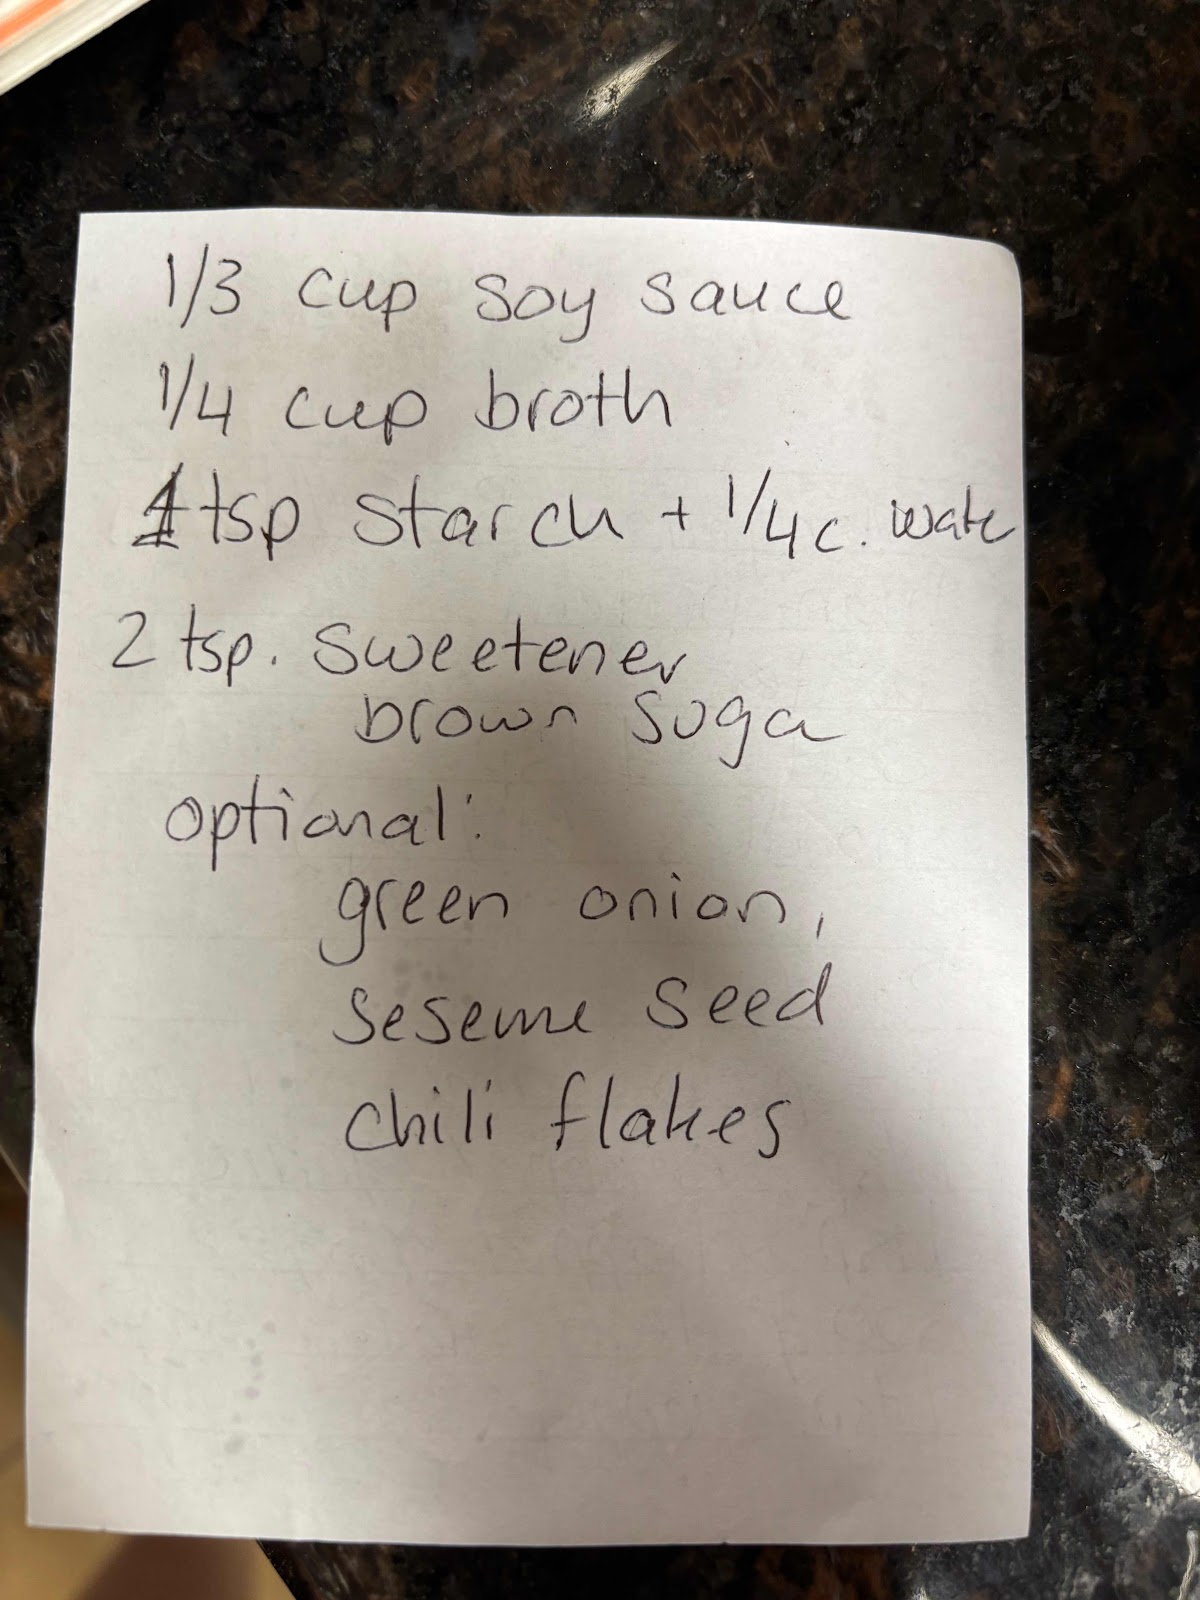 1/3 cup soy sauce
1/4 cup broth
1 tsp starch + 1/4 c. wate
2 tsp. sweetener
brown suga
optional:
green onion,
seseme seed
chili flakes